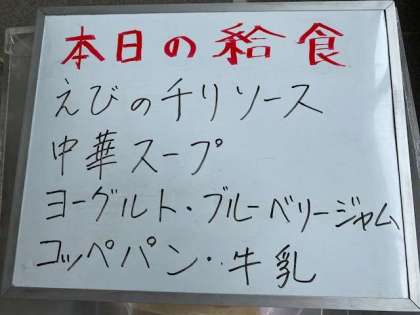 本日の給食
えびのチリソース
中華スープ
ヨーグルト・ブルーベリージャム
コッペパン・牛乳